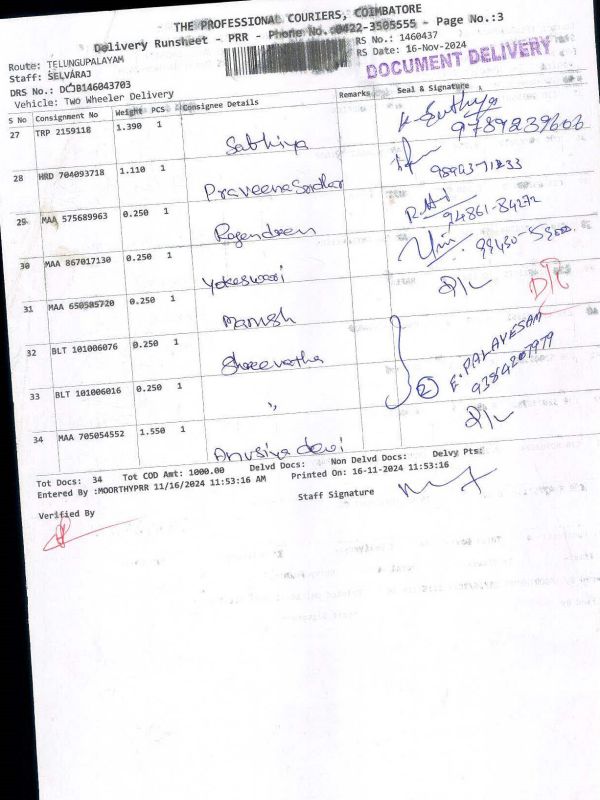 THE PROFESSIONAL COURIERS, COIMBATORE
Delivery Runsheet - PRR - Phone No.:0422-3505555 - Page No.:3
Route: TELUNGUPALAYAM
RS No.: 1460437
Staff: SELVARAJ
RS Date: 16-Nov-2024
DOCUMENT DELIVERY
DRS No.: DCJB146043703
Vehicle: Two Wheeler Delivery
S No Consignment No Weight PCS Consignee Details Remarks Seal & Signature
27 TRP 2159118 1.390 1 Sathiya
9789239606
28 HRD 704093718 1.110 1
29 MAA 575689963 0.250 1 Rajendren
94861-84272
30 MAA 867017130 0.250 1 Yokeswari
31 MAA 650505720 0.250 1 Manish
32 BLT 101006076 0.250 1
33 BLT 101006016 0.250 1 ,,
2 E. PALAVESAM
9384207979
34 MAA 705054552 1.550 1 Anusiya devi
Tot Docs: 34 Tot COD Amt: 1000.00 Delvd Docs: Non Delvd Docs: Delvy Pts:
Entered By :MOORTHYPRR 11/16/2024 11:53:16 AM Printed On: 16-11-2024 11:53:16
Staff Signature
Verified By